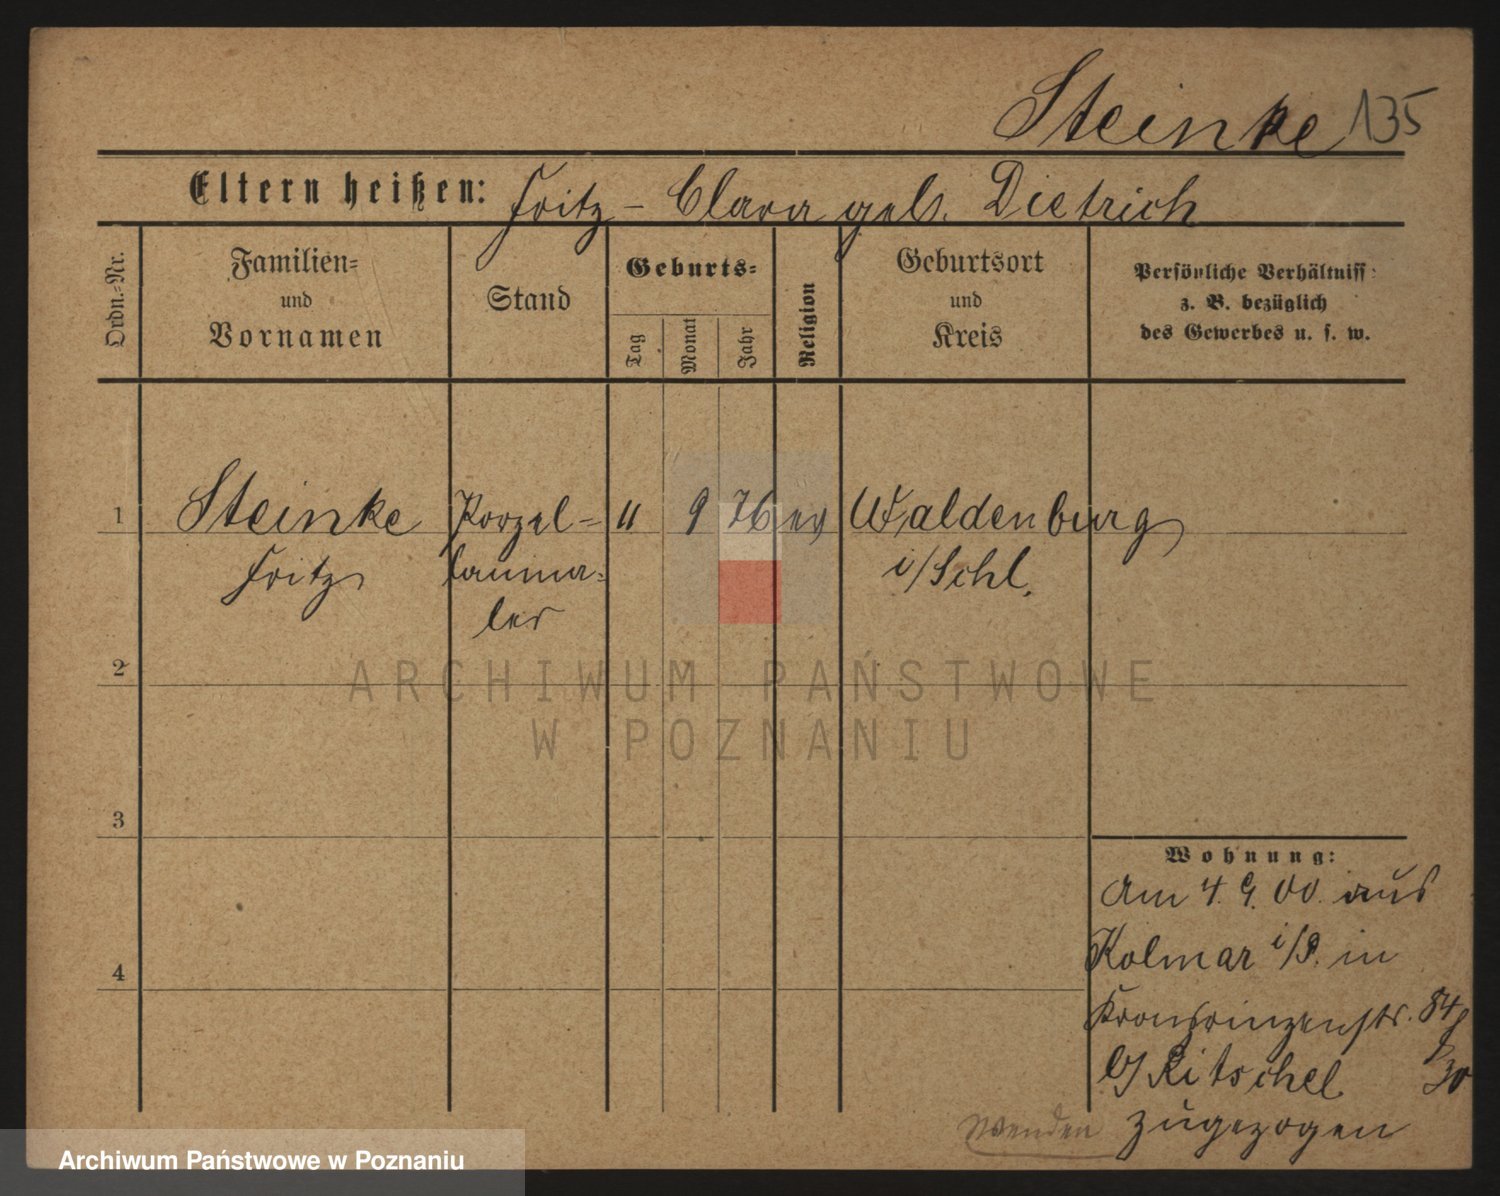 Steinke 135
Eltern heißen: Fritz - Clara geb. Dietrich
Ordn.-Nr.
Familien-
und
Vornamen
Stand
Geburts-
Tag
Monat
Jahr
Religion
Geburtsort
und
Kreis
Persönliche Verhältniss
z. B. bezüglich
des Gewerbes u. s. w.
1 Steinke Porzel- 11 9 76 ev Waldenburg
Fritz lanma- i/Schl.
ler
2
ARCHIWUM PAŃSTWOWE
W POZNANIU
3
Wohnung:
Am 4. 9. 00. aus
Kolmar i/P. in
4
Kronprinzenstr. 84
b/ Ritschel
30
Wenden zugezogen
Archiwum Państwowe w Poznaniu